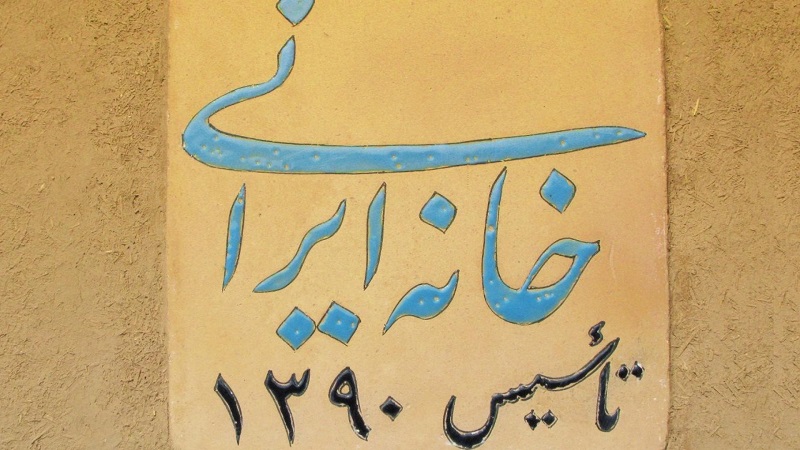 خانه ایرانی
تأسیس ۱۳۹۰